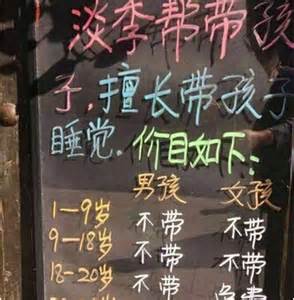 淡季帮带孩
子,擅长带孩子
睡觉.价目如下:
男孩 女孩
1-9岁 不带 不带
9-18岁 不带 不带
18-20岁 不带